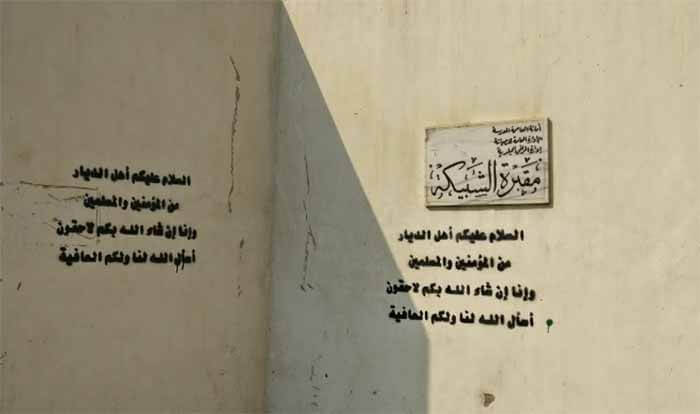 السلام عليكم أهل الديار
من المؤمنين والمسلمين
وإنا إن شاء الله بكم لاحقون
أسأل الله لنا ولكم العافية
أمانة العاصمة المقدسة
مقبرة الشبيكة
السلام عليكم أهل الديار
من المؤمنين والمسلمين
وإنا إن شاء الله بكم لاحقون
أسأل الله لنا ولكم العافية